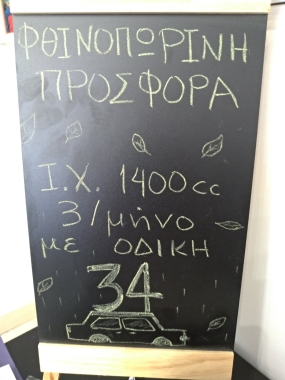 ΦΘΙΝΟΠΩΡΙΝΗ
ΠΡΟΣΦΟΡΑ
Ι.Χ. 1400cc
3/μήνο
με ΟΔΙΚΗ
34